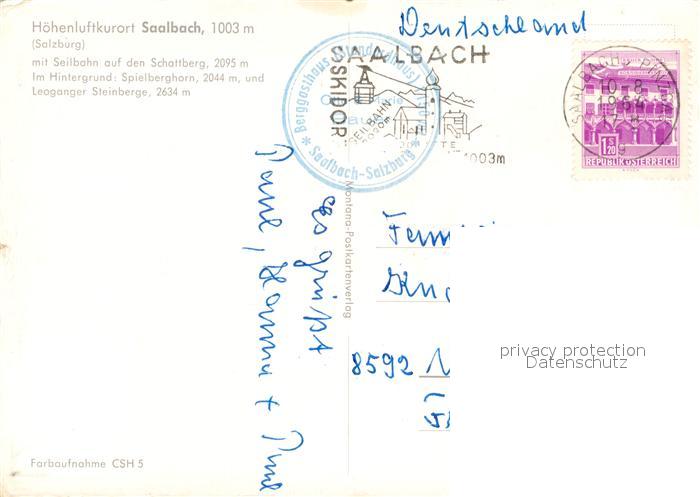 Höhenluftkurort Saalbach, 1003 m
(Salzburg)
mit Seilbahn auf den Schattberg, 2095 m
Im Hintergrund: Spielberghorn, 2044 m, und
Leoganger Steinberge, 2634 m
Deutschland
SAALBACH
SKIDORF
SEILBAHN
2020m
1003m
Berggasthaus
Saalbach-Salzburg
SAALBACH, PINZGAU
10.-8.
1964
17-8
1S
1.20
REPUBLIK ÖSTERREICH
Montana-Postkartenverlag
Es grüßt
Paul, Hanna +
Fam
8592
privacy protection
Datenschutz
Farbaufnahme CSH 5